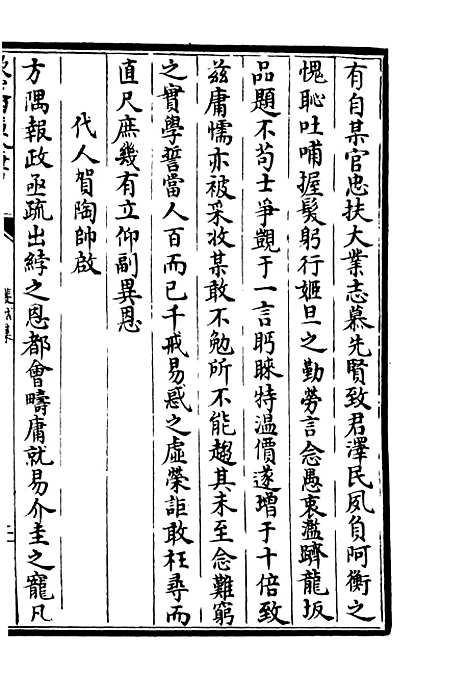 有自某官忠扶大業志慕先賢致君澤民夙負阿衡之
愧恥吐哺握髮躬行姬旦之勤勞言念愚衷濫躋龍坂
品題不苟士爭觀于一言眄睞特温價遂增于十倍致
兹庸懦亦被采收某敢不勉所不能趨其未至念難窮
之實學誓當人百而已千戒易惑之虛榮詎敢枉尋而
直尺庶幾有立仰副異恩
代人賀陶帥啟
方隅報政亟疏出綍之恩都會疇庸就易介圭之寵凡